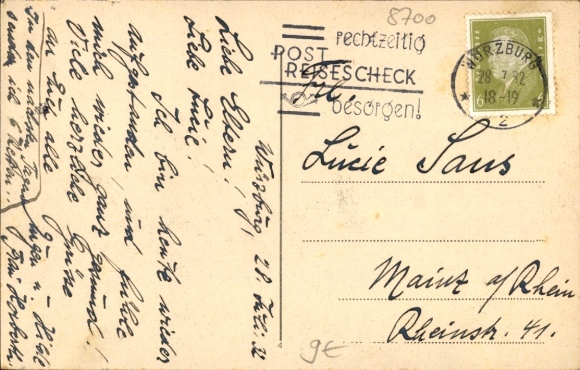 8700
rechtzeitig
POST
REISESCHECK
besorgen!
WÜRZBURG
28.7.32
18-19
2
6 6
Frl.
Lucie Sans
Mainz a/Rhein
Rheinstr. 41.
9€
4
Würzburg, 28. Juli 32
Liebe Eltern!
Liebe Lucie!
Ich bin heute wieder
aufgestanden und fühle
mich wieder ganz gesund!
Viele herzliche Grüße
an Euch alle
In den nächsten Tagen